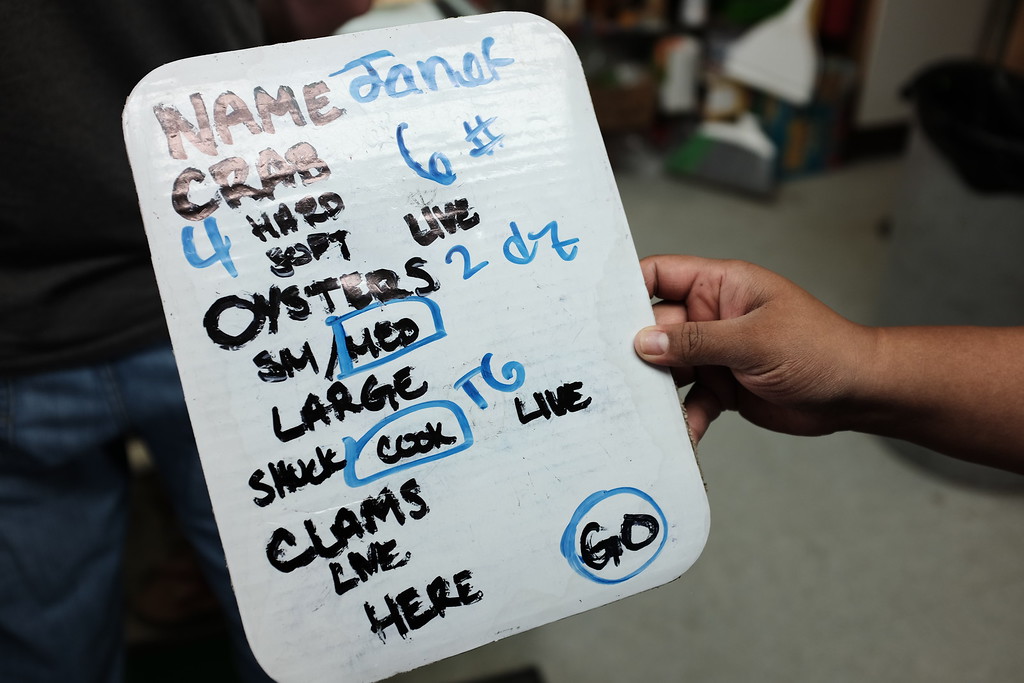 NAME Janet
CRAB 6 #
4 HARD LIVE
SOFT
OYSTERS 2 dz
SM/MED
LARGE TG
SHUCK COOK LIVE
CLAMS
LIVE
HERE GO